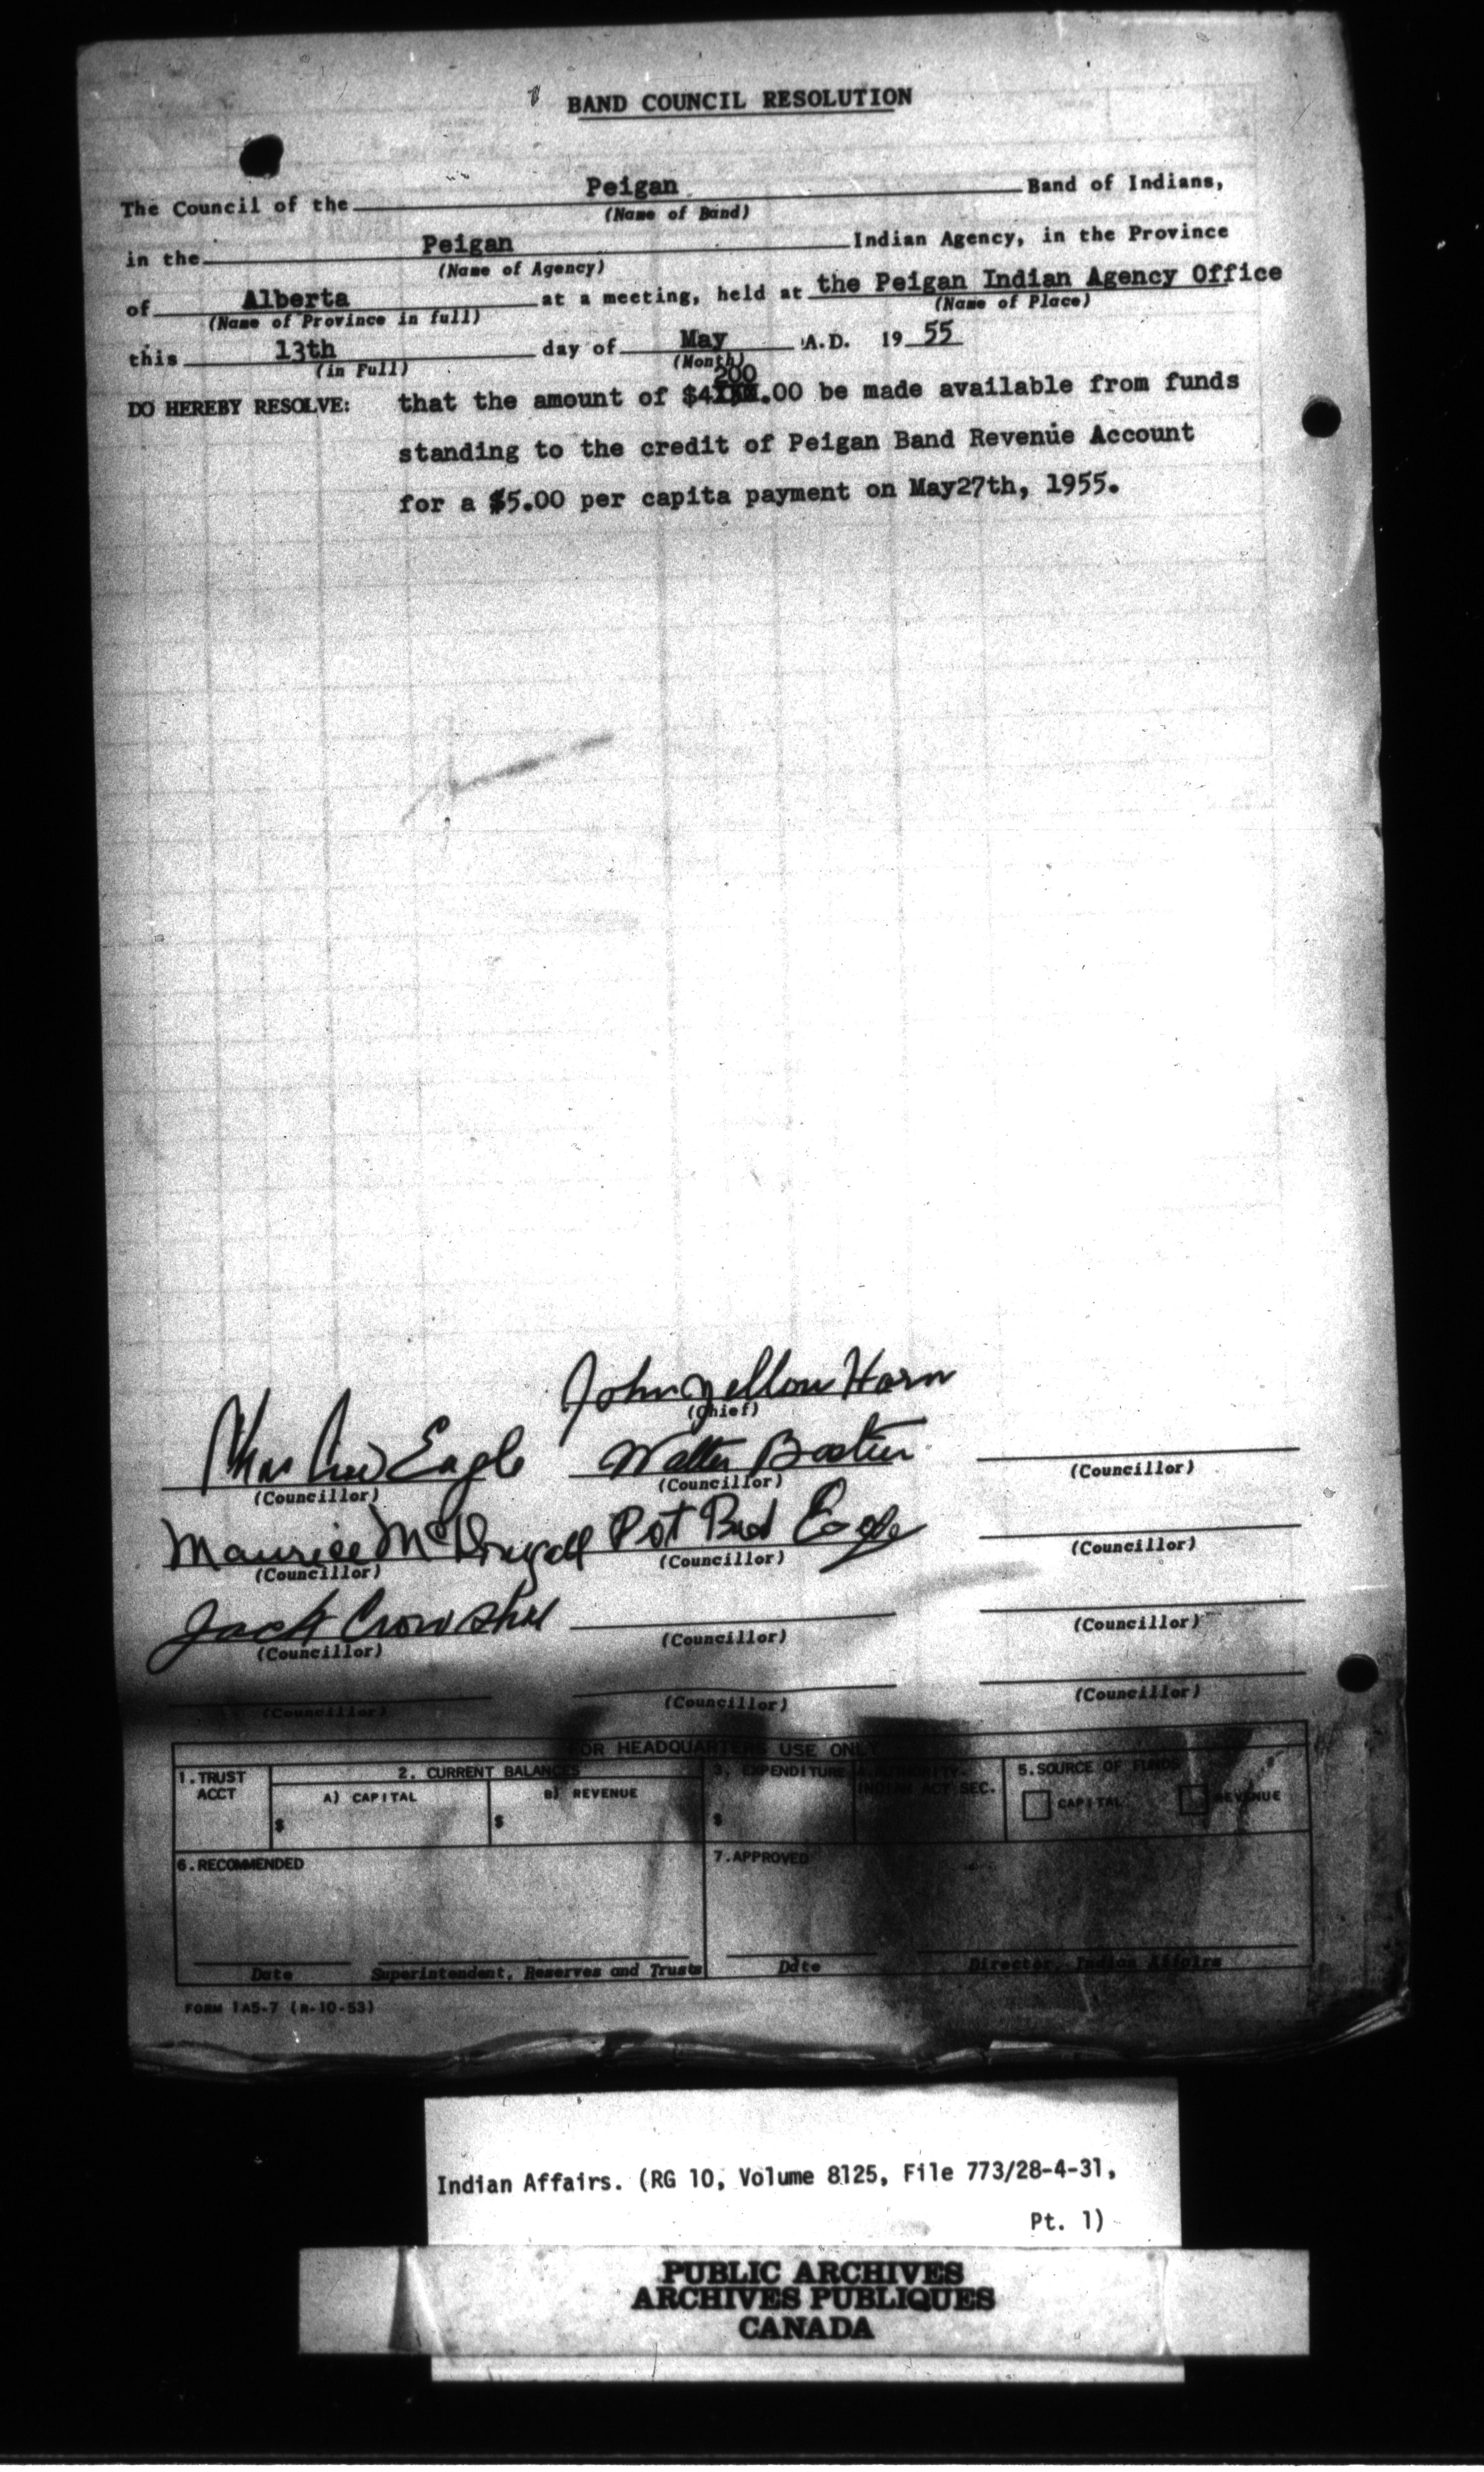 BAND COUNCIL RESOLUTION
The Council of the Peigan Band of Indians,
(Name of Band)
in the Peigan Indian Agency, in the Province
(Name of Agency)
of Alberta at a meeting, held at the Peigan Indian Agency Office
(Name of Province in full) (Name of Place)
this 13th day of May A.D. 19 55
(in Full) (Month)
200
DO HEREBY RESOLVE: that the amount of $4XXX.00 be made available from funds
standing to the credit of Peigan Band Revenue Account
for a $5.00 per capita payment on May27th, 1955.
John Yellow Horn
(Chief)
Eagle Walter Bastien
(Councillor) (Councillor) (Councillor)
Maurice McDougall Pat Bad Eagle
(Councillor) (Councillor) (Councillor)
Jack Crowshoe
(Councillor) (Councillor) (Councillor)
(Councillor) (Councillor) (Councillor)
FOR HEADQUARTERS USE ONLY
1. TRUST ACCT 2. CURRENT BALANCES 3. EXPENDITURE 4. AUTHORITY- INDIAN ACT SEC. 5. SOURCE OF FUNDS
A) CAPITAL B) REVENUE CAPITAL REVENUE
$ $ $
6. RECOMMENDED 7. APPROVED
Date Superintendent, Reserves and Trusts Date Director, Indian Affairs
FORM 1A5-7 (R-10-53)
Indian Affairs. (RG 10, Volume 8125, File 773/28-4-31,
Pt. 1)
PUBLIC ARCHIVES
ARCHIVES PUBLIQUES
CANADA